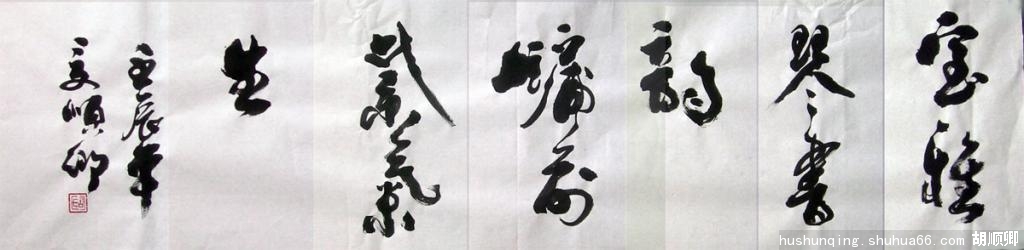 室雅
琴書
韻
前
紫氣
生
壬辰年
夏順卿
hushunqing.shuhua66.com 胡顺卿